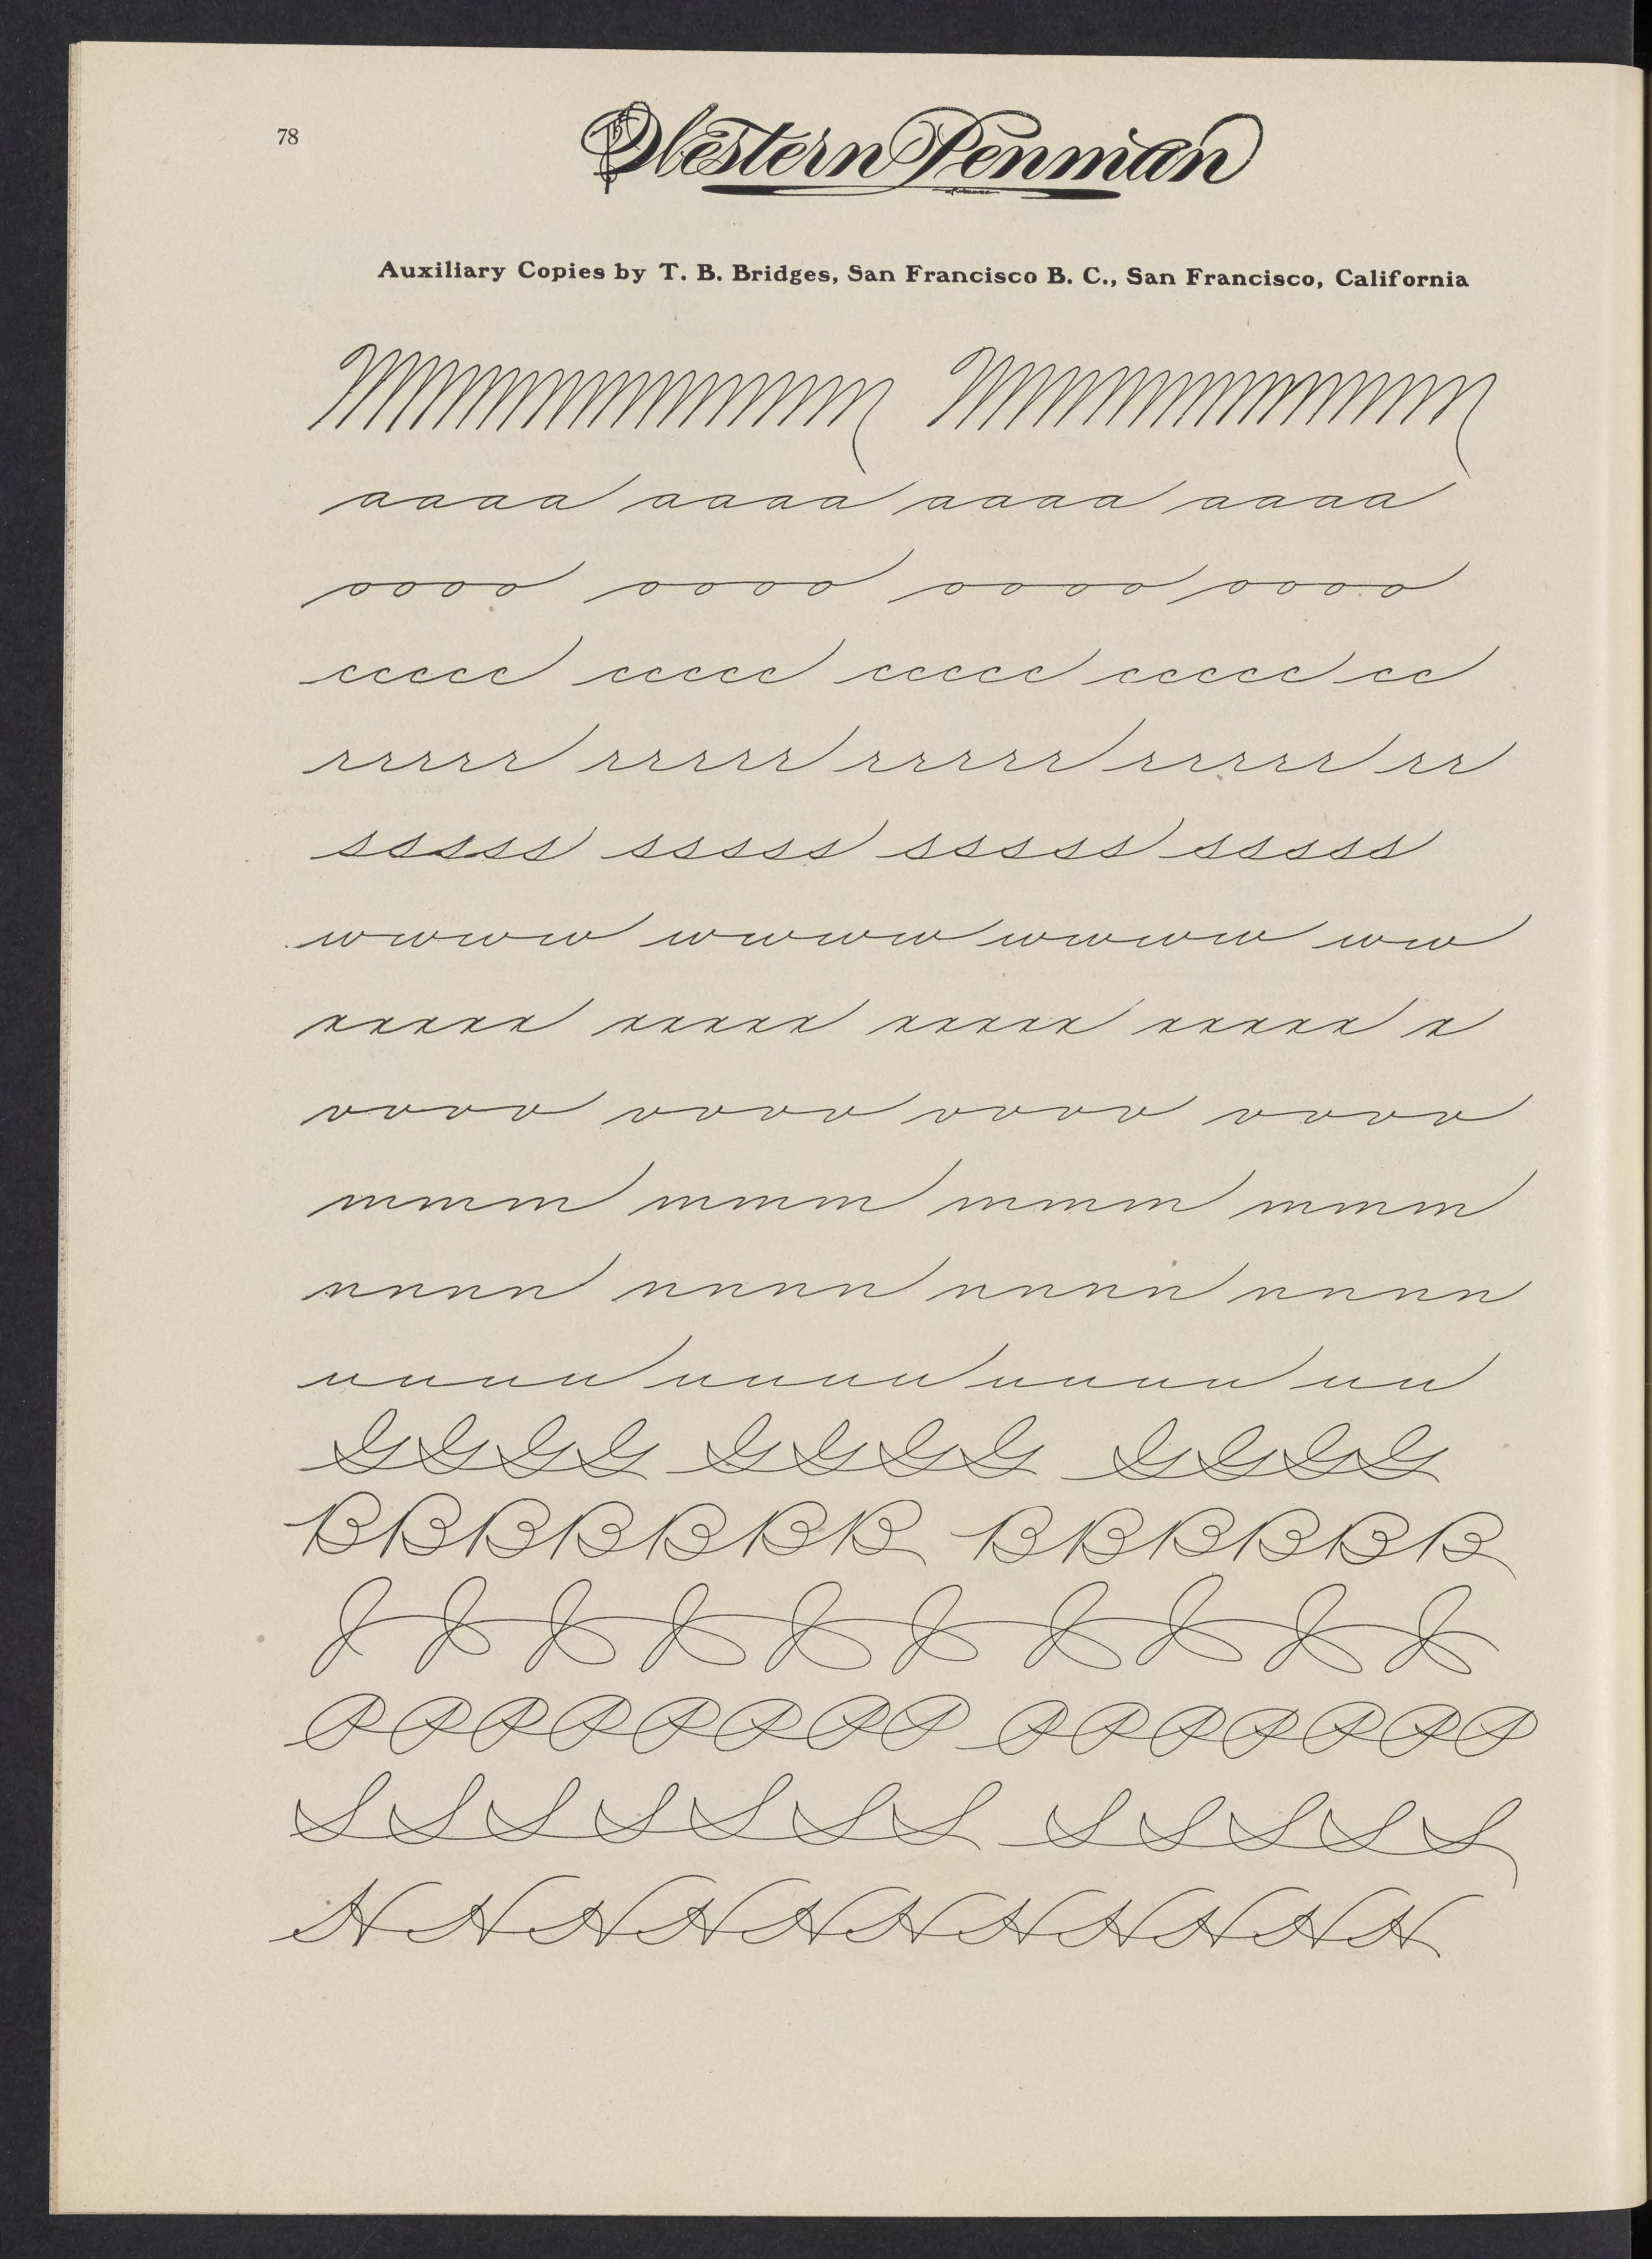 78
Western Penman
Auxiliary Copies by T. B. Bridges, San Francisco B. C., San Francisco, California
aaaaa aaaaa aaaaa aaaaa
oooo oooo oooo oooo
ccccc ccccc ccccc ccccc cc
rrrrr rrrrr rrrrr rrrrr rr
sssss sssss sssss sssss
wwww wwww wwww ww
xxxxx xxxxx xxxxx xxxxx x
vvvv vvvv vvvv vvvv
mmm mmm mmm mmm
nnnn nnnn nnnn nnnn
uuuu uuuu uuuu uu
GGGG GGGG GGGG
BBBBBBB BBBBBB
JJJJJJJJJJ
PPPPPPPP PPPPPPP
SSSSSSS SSSSS
HHHHHHHHHHH